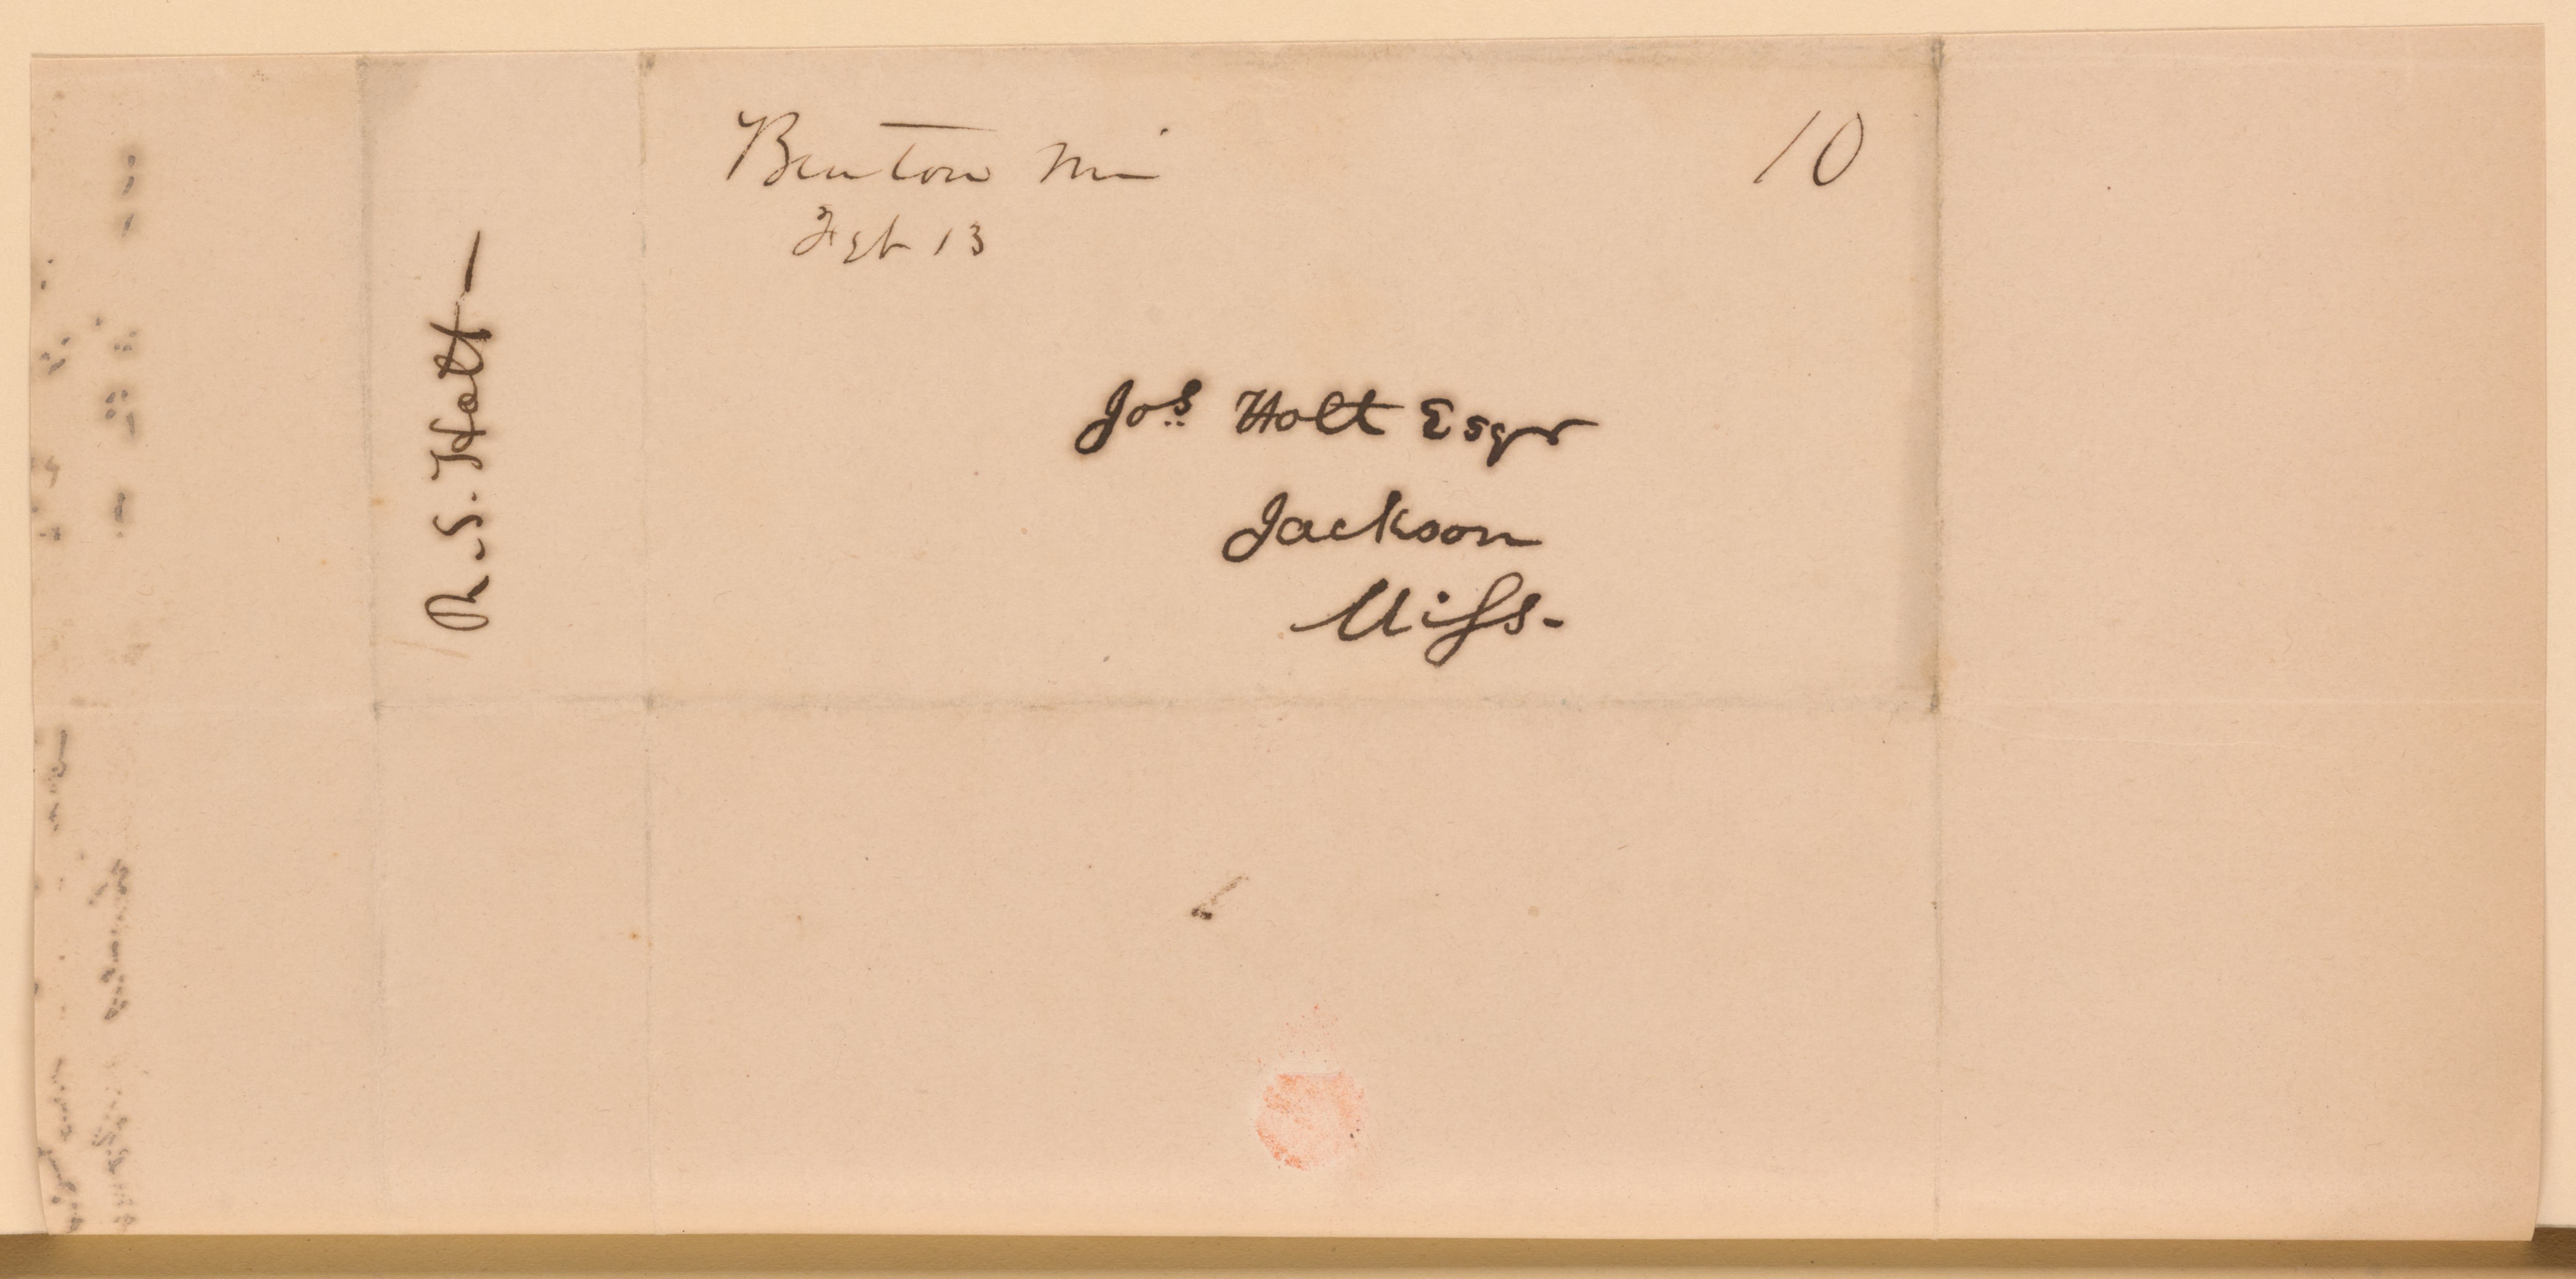 Benton Mi
10
Feb 13
Jos Holt Esqr
Jackson
Miss.
R. S. Holt